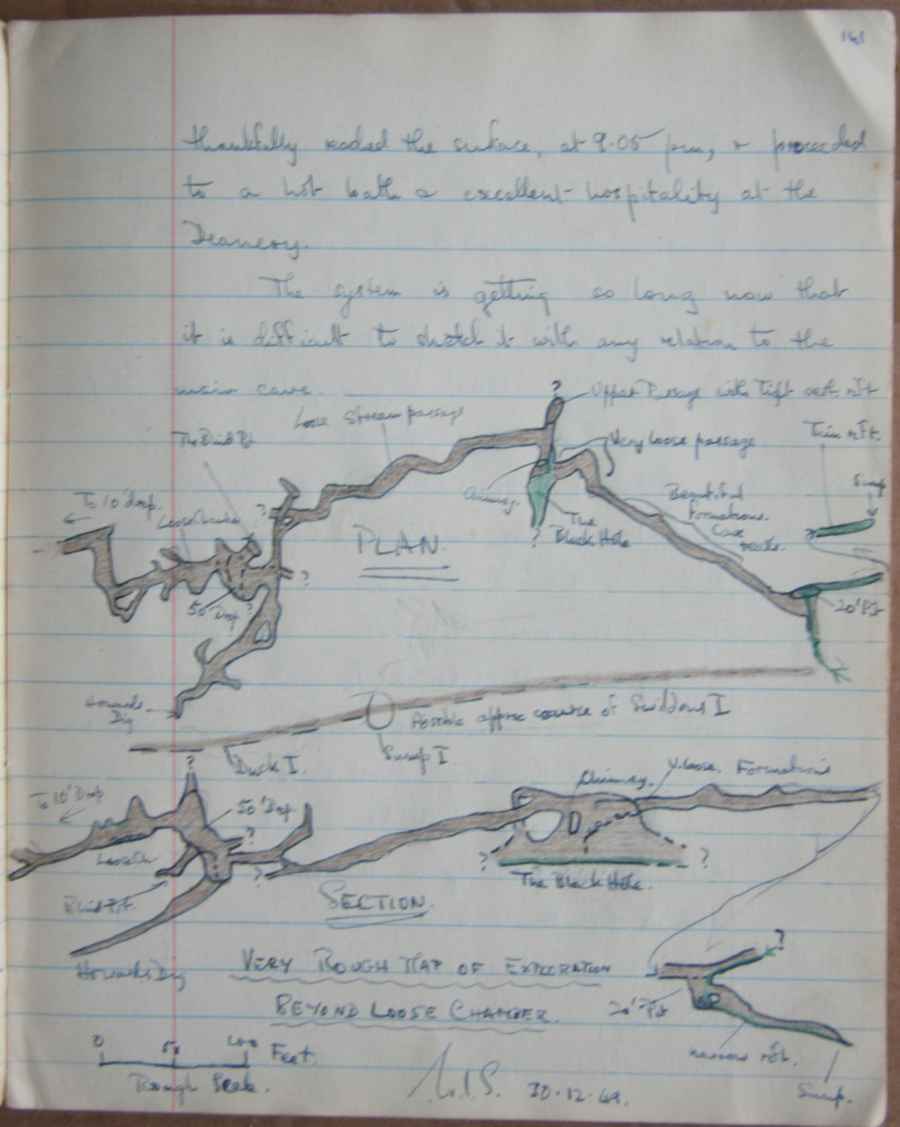 161
thankfully reached the surface, at 9.05 pm, & proceeded
to a hot bath & excellent hospitality at the
Deanery.
The system is getting so long now that
it is difficult to sketch it with any relation to the
main cave.
?
Upper Passage with tight vert. rift
Loose Stream passage
The Blind Pit
Very loose passage
Thin rift.
To 10' drop.
Loose
Chimney.
Beautiful
Formations.
Sump
?
The
Black Hole
?
PLAN.
?
50' Drop
?
20' Pit
Dig
Possible approx course of Swildons I
Duck I.
Sump I
?
Chimney.
V. loose.
Formations
To 10' Drop
50' Drop
?
Loose Ch.
?
?
?
The Black Hole.
Blind Pit.
SECTION.
Dig
VERY ROUGH MAP OF EXPLORATION
BEYOND LOOSE CHAMBER.
?
20' Pit
narrow rift.
Sump.
0 50 100 Feet.
Rough Scale.
30.12.69.